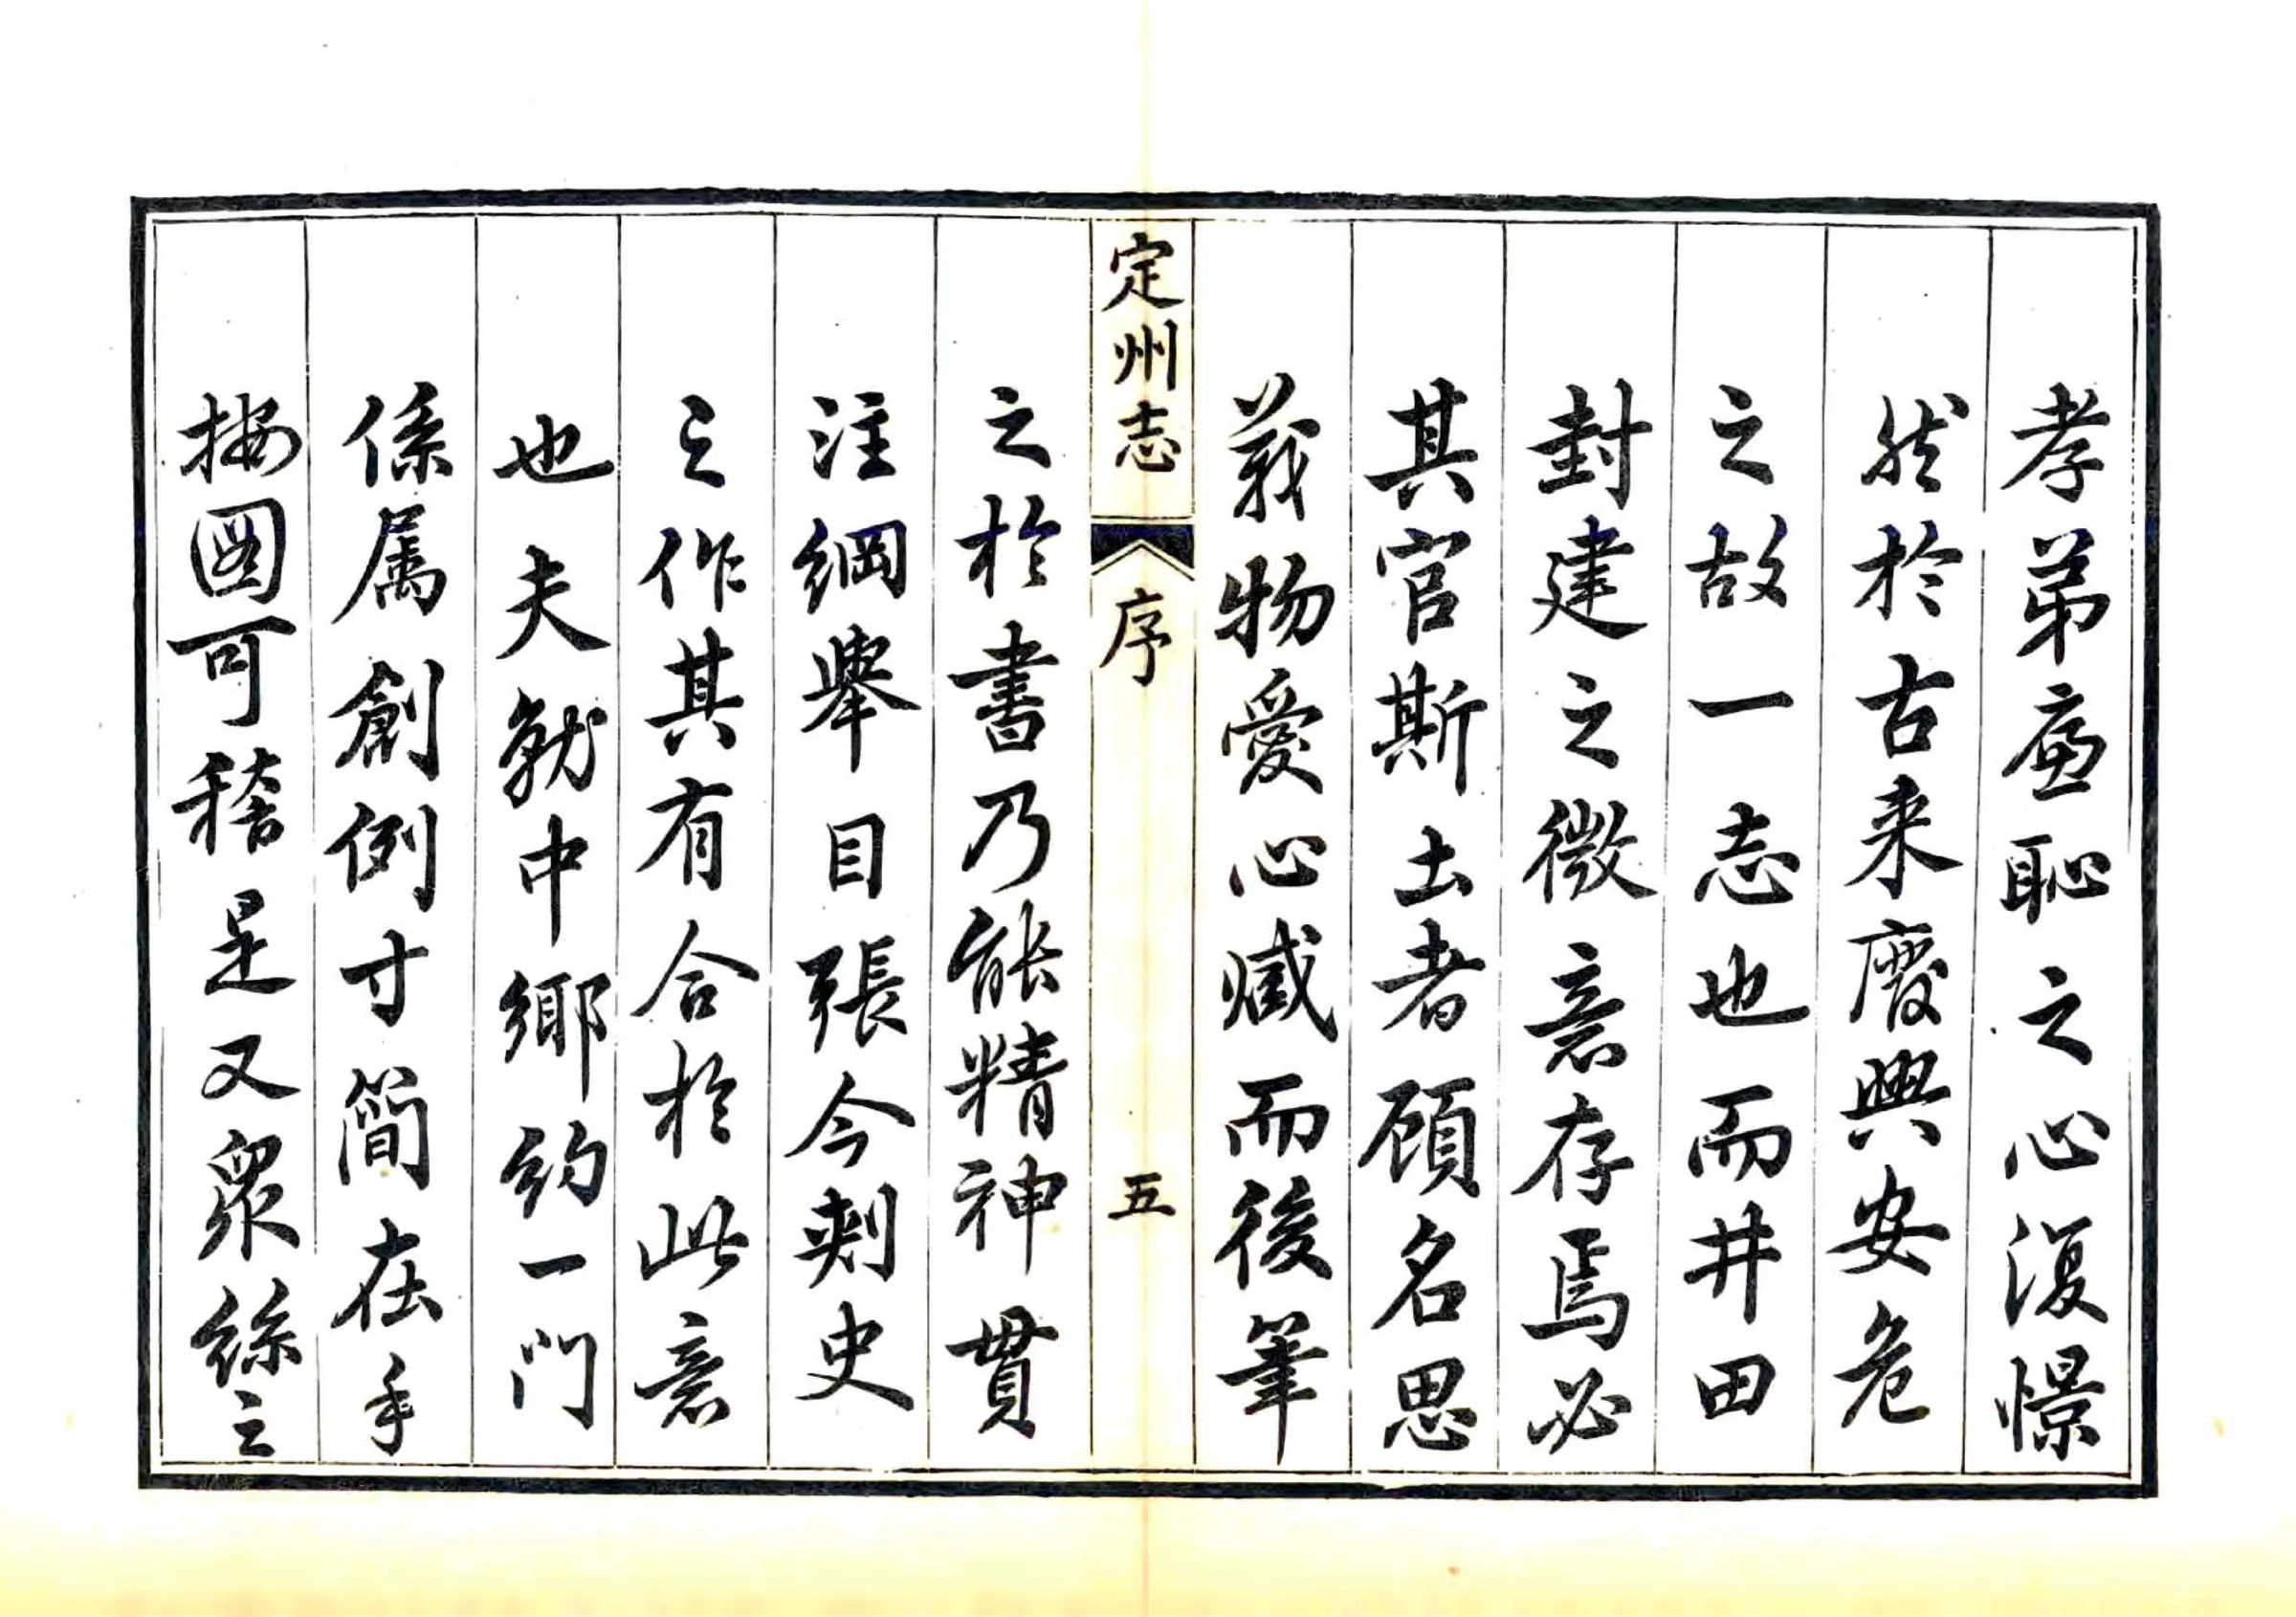 孝弟廉恥之心復憬
然於古来廢興安危
之故一志也而井田
封建之微意存焉必
其官斯土者顧名思
義物愛心臧而後筆
定州志 序 五
之於書乃能精神貫
注綱舉目張今刺史
之作其有合於此意
也夫就中鄉約一門
係属創例寸簡在手
按圖可稽足又衆絲之